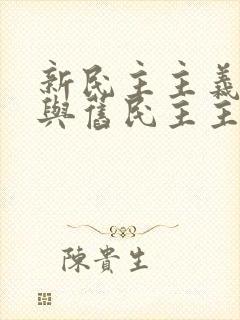 新民主主義
與舊民主主
陳貴生